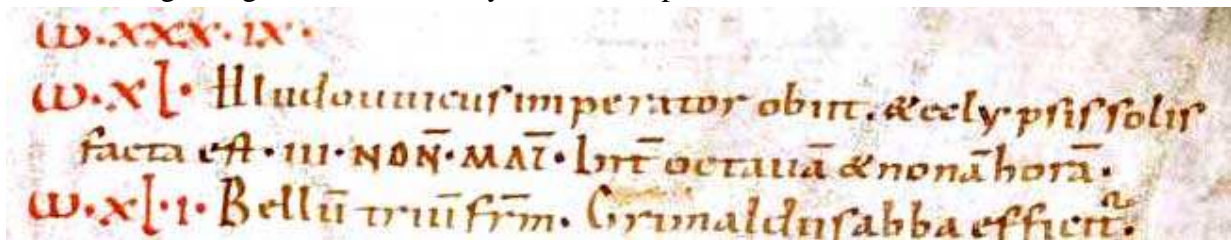 ω·xxx·ix·
ω·xl· Hludouuicus imperator obiit. & eclypsis solis
facta est · iii · NON̄ · MAI̅ · Int̄ octauā & nonā horā.
ω·xl·i· Bellū triū fr̄m. Grimaldus abba efficit̄.